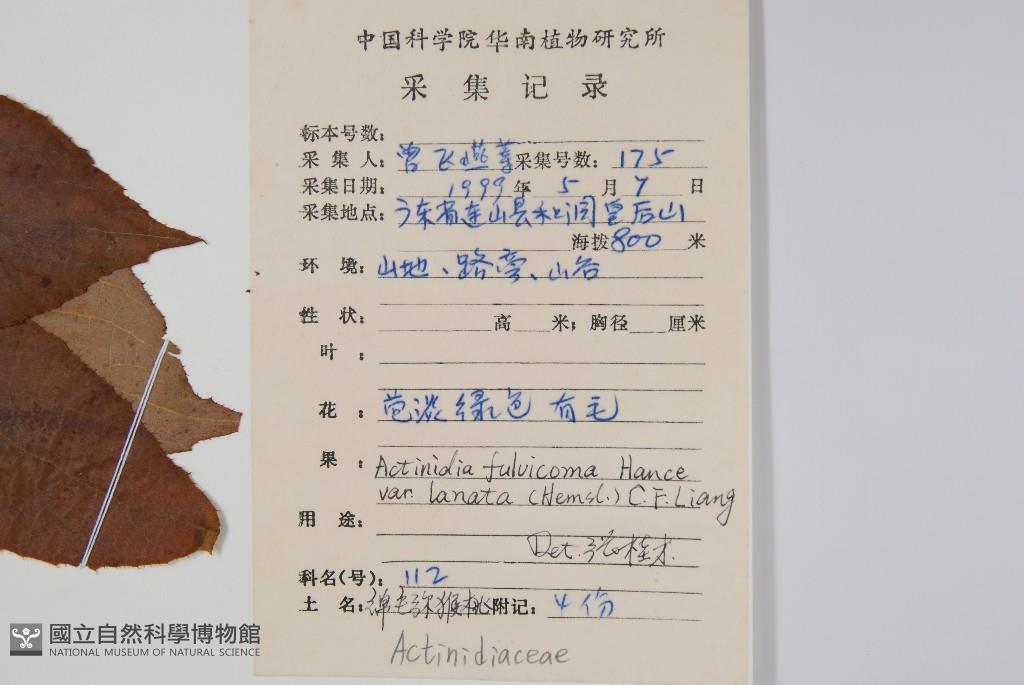 中国科学院华南植物研究所
采集记录
标本号数:
采集人:曾飞燕等采集号数:175
采集日期: 1999年 5月7日
采集地点:广东省连山县禾洞皇后山
海拨800米
环境:山地、路旁、山谷
性状: 高 米; 胸径 厘米
叶:
花:苞淡绿色 有毛
果:Actinidia fulvicoma Hance
var. lanata (Hemsl.) C.F.Liang
用途:
Det. 张桂才
科名(号): 112
土名:绵毛猕猴桃 附记: 4份
Actinidiaceae
國立自然科學博物館
NATIONAL MUSEUM OF NATURAL SCIENCE